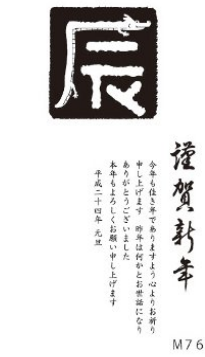 辰
謹賀新年
今年も佳き年でありますよう心よりお祈り
申し上げます 昨年は何かとお世話になり
ありがとうございました
本年もよろしくお願い申し上げます
平成二十四年 元旦
M76